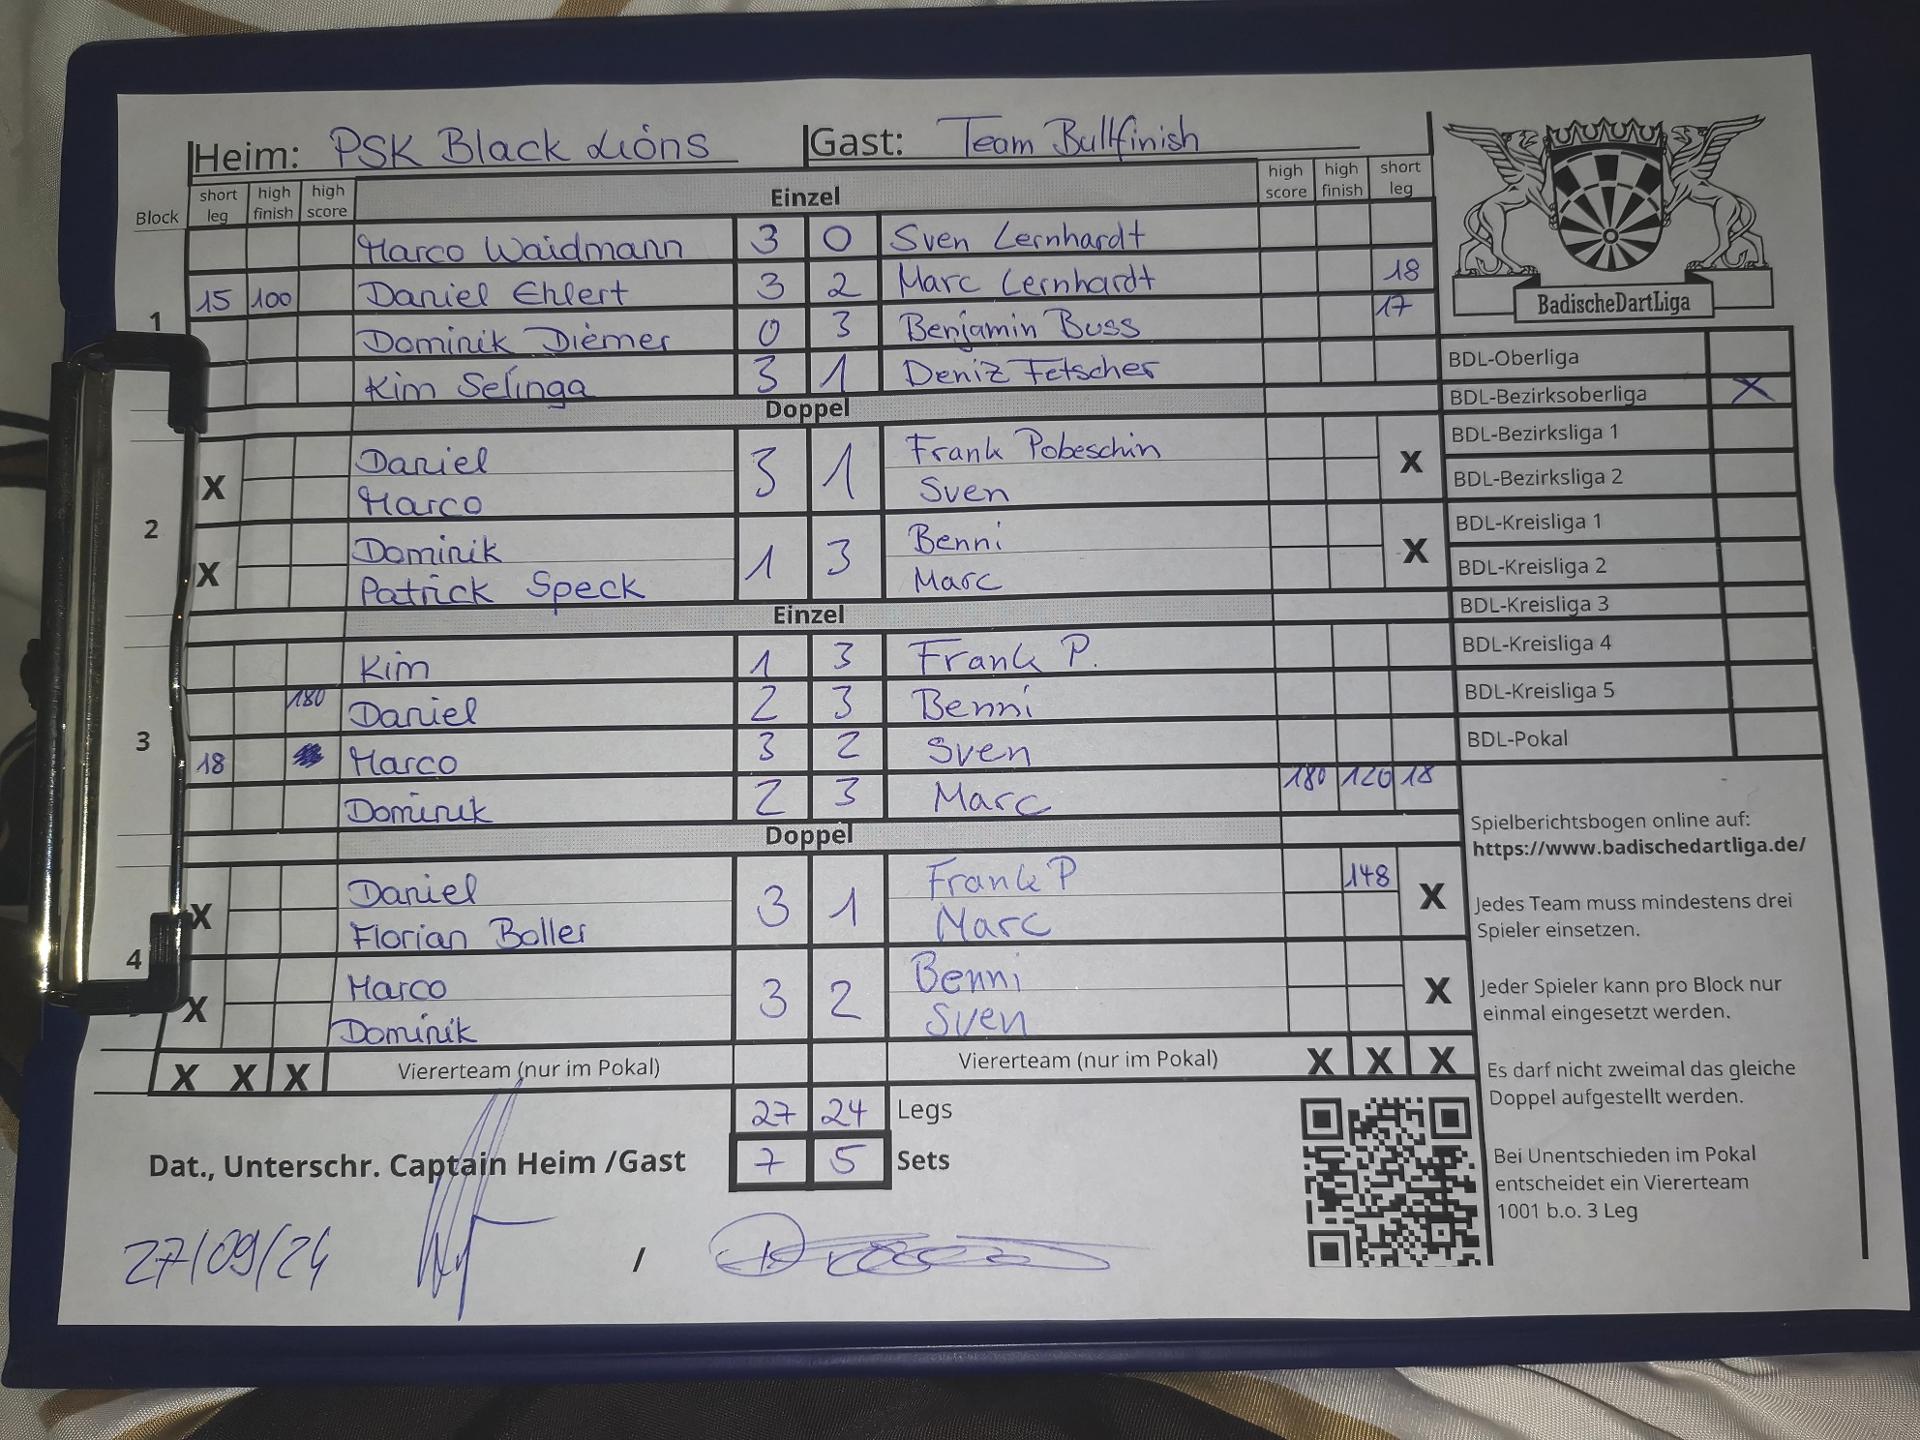 Heim: PSK Black Lions Gast: Team Bullfinish
Block short leg high finish high score Einzel high score high finish short leg
Marco Waidmann 3 0 Sven Lernhardt
15 100 Daniel Ehlert 3 2 Marc Lernhardt 18
1 Dominik Diemer 0 3 Benjamin Buss 17
Kim Selinga 3 1 Deniz Fetscher
Doppel
Daniel 3 1 Frank Pobeschin
X Marco Sven X
2
Dominik 1 3 Benni
X Patrick Speck Marc X
Einzel
Kim 1 3 Frank P.
180 Daniel 2 3 Benni
3
18 Marco 3 2 Sven
Dominik 2 3 Marc 180 120 18
Doppel
Daniel 3 1 Frank P 148
X Florian Boller Marc X
4
Marco 3 2 Benni
X Dominik Sven X
X X X Viererteam (nur im Pokal) Viererteam (nur im Pokal) X X X
27 24 Legs
Dat., Unterschr. Captain Heim /Gast 7 5 Sets
27/09/24 /
BadischeDartLiga
BDL-Oberliga
BDL-Bezirksoberliga X
BDL-Bezirksliga 1
BDL-Bezirksliga 2
BDL-Kreisliga 1
BDL-Kreisliga 2
BDL-Kreisliga 3
BDL-Kreisliga 4
BDL-Kreisliga 5
BDL-Pokal
Spielberichtsbogen online auf:
https://www.badischedartliga.de/
Jedes Team muss mindestens drei
Spieler einsetzen.
Jeder Spieler kann pro Block nur
einmal eingesetzt werden.
Es darf nicht zweimal das gleiche
Doppel aufgestellt werden.
Bei Unentschieden im Pokal
entscheidet ein Viererteam
1001 b.o. 3 Leg